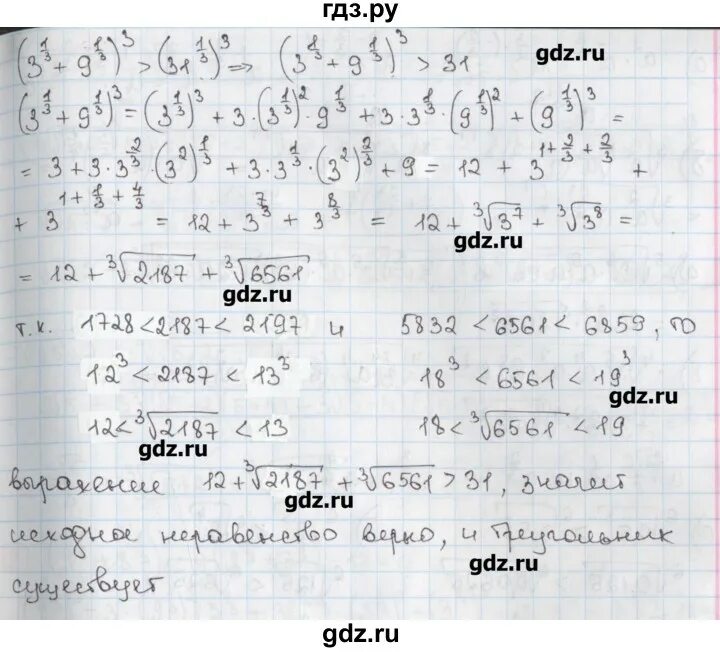 гдз.ру
(3^{1/3} + 9^{1/3})^3 > (31^{1/3})^3 ⇒ (3^{1/3} + 9^{1/3})^3 > 31
gdz.ru
(3^{1/3} + 9^{1/3})^3 = (3^{1/3})^3 + 3·(3^{1/3})^2·9^{1/3} + 3·3^{1/3}·(9^{1/3})^2 + (9^{1/3})^3 =
= 3 + 3·3^{2/3}·(3^2)^{1/3} + 3·3^{1/3}·(3^2)^{2/3} + 9 = 12 + 3^{1+2/3+2/3} +
+ 3^{1+1/3+4/3} = 12 + 3^{7/3} + 3^{8/3} = 12 + ∛3^7 + ∛3^8 =
gdz.ru
= 12 + ∛2187 + ∛6561
gdz.ru
т.к. 1728 < 2187 < 2197 и 5832 < 6561 < 6859, то
12^3 < 2187 < 13^3 18^3 < 6561 < 19^3
gdz.ru
12 < ∛2187 < 13 18 < ∛6561 < 19
gdz.ru
выражение 12 + ∛2187 + ∛6561 > 31, значит
gdz.ru
исходное неравенство верно, и треугольник
gdz.ru
существует
gdz.ru